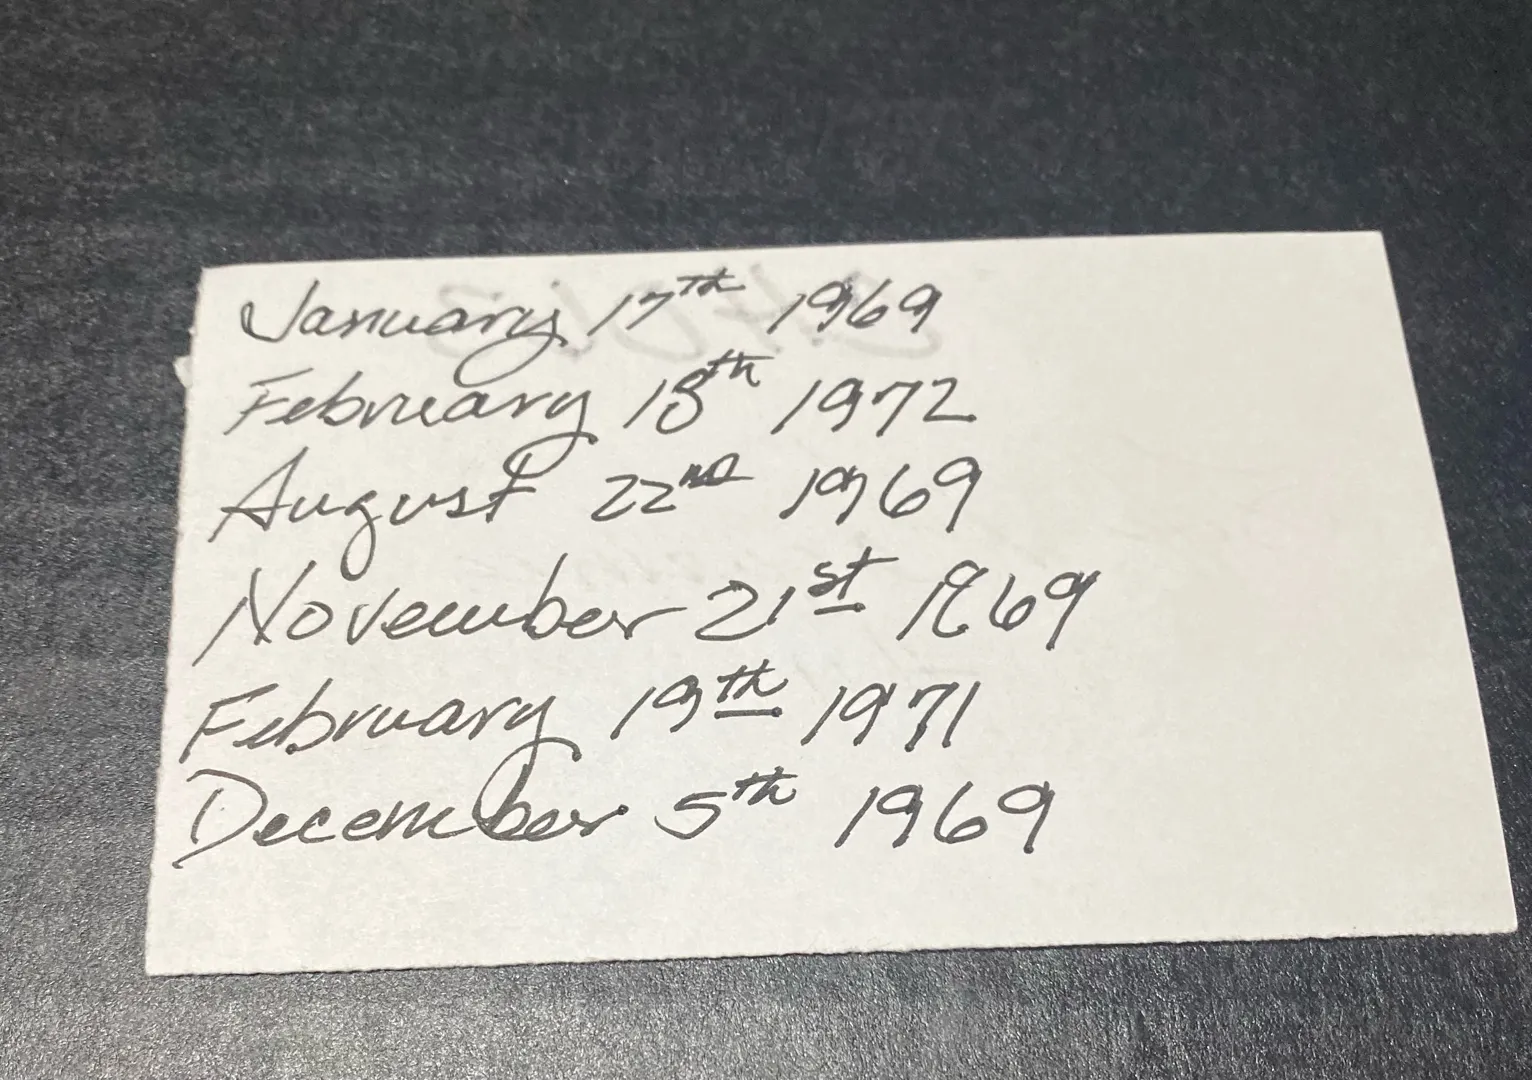 January 17th 1969
February 18th 1972
August 22nd 1969
November 21st 1969
February 19th 1971
December 5th 1969